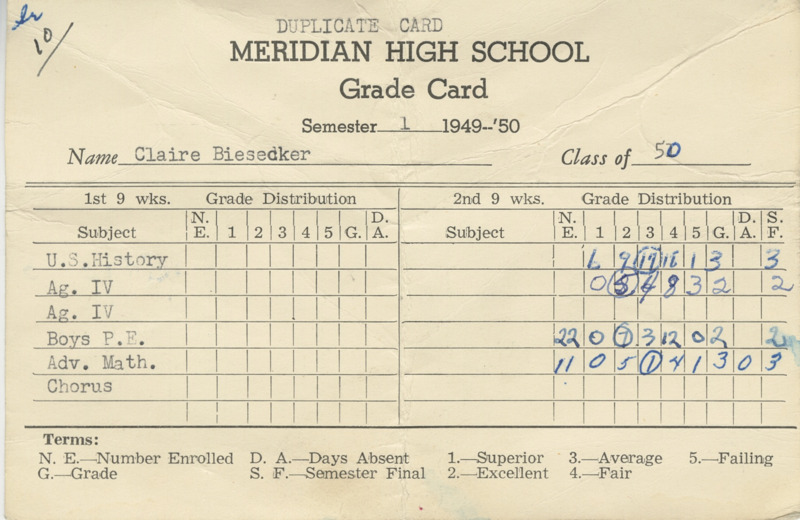 10
DUPLICATE CARD
MERIDIAN HIGH SCHOOL
Grade Card
Semester 1 1949--'50
Name Claire Biesedker Class of 50
1st 9 wks. Grade Distribution 2nd 9 wks. Grade Distribution
Subject N. E. 1 2 3 4 5 G. D. A. Subject N. E. 1 2 3 4 5 G. D. A. S. F.
U.S.History 9 1 3 3
Ag. IV 0 5 8 3 2 2
Ag. IV
Boys P.E. 22 0 7 3 12 0 2 2
Adv. Math. 11 0 5 1 4 1 3 0 3
Chorus
Terms:
N. E.—Number Enrolled D. A.—Days Absent 1.—Superior 3.—Average 5.—Failing
G.—Grade S. F.—Semester Final 2.—Excellent 4.—Fair